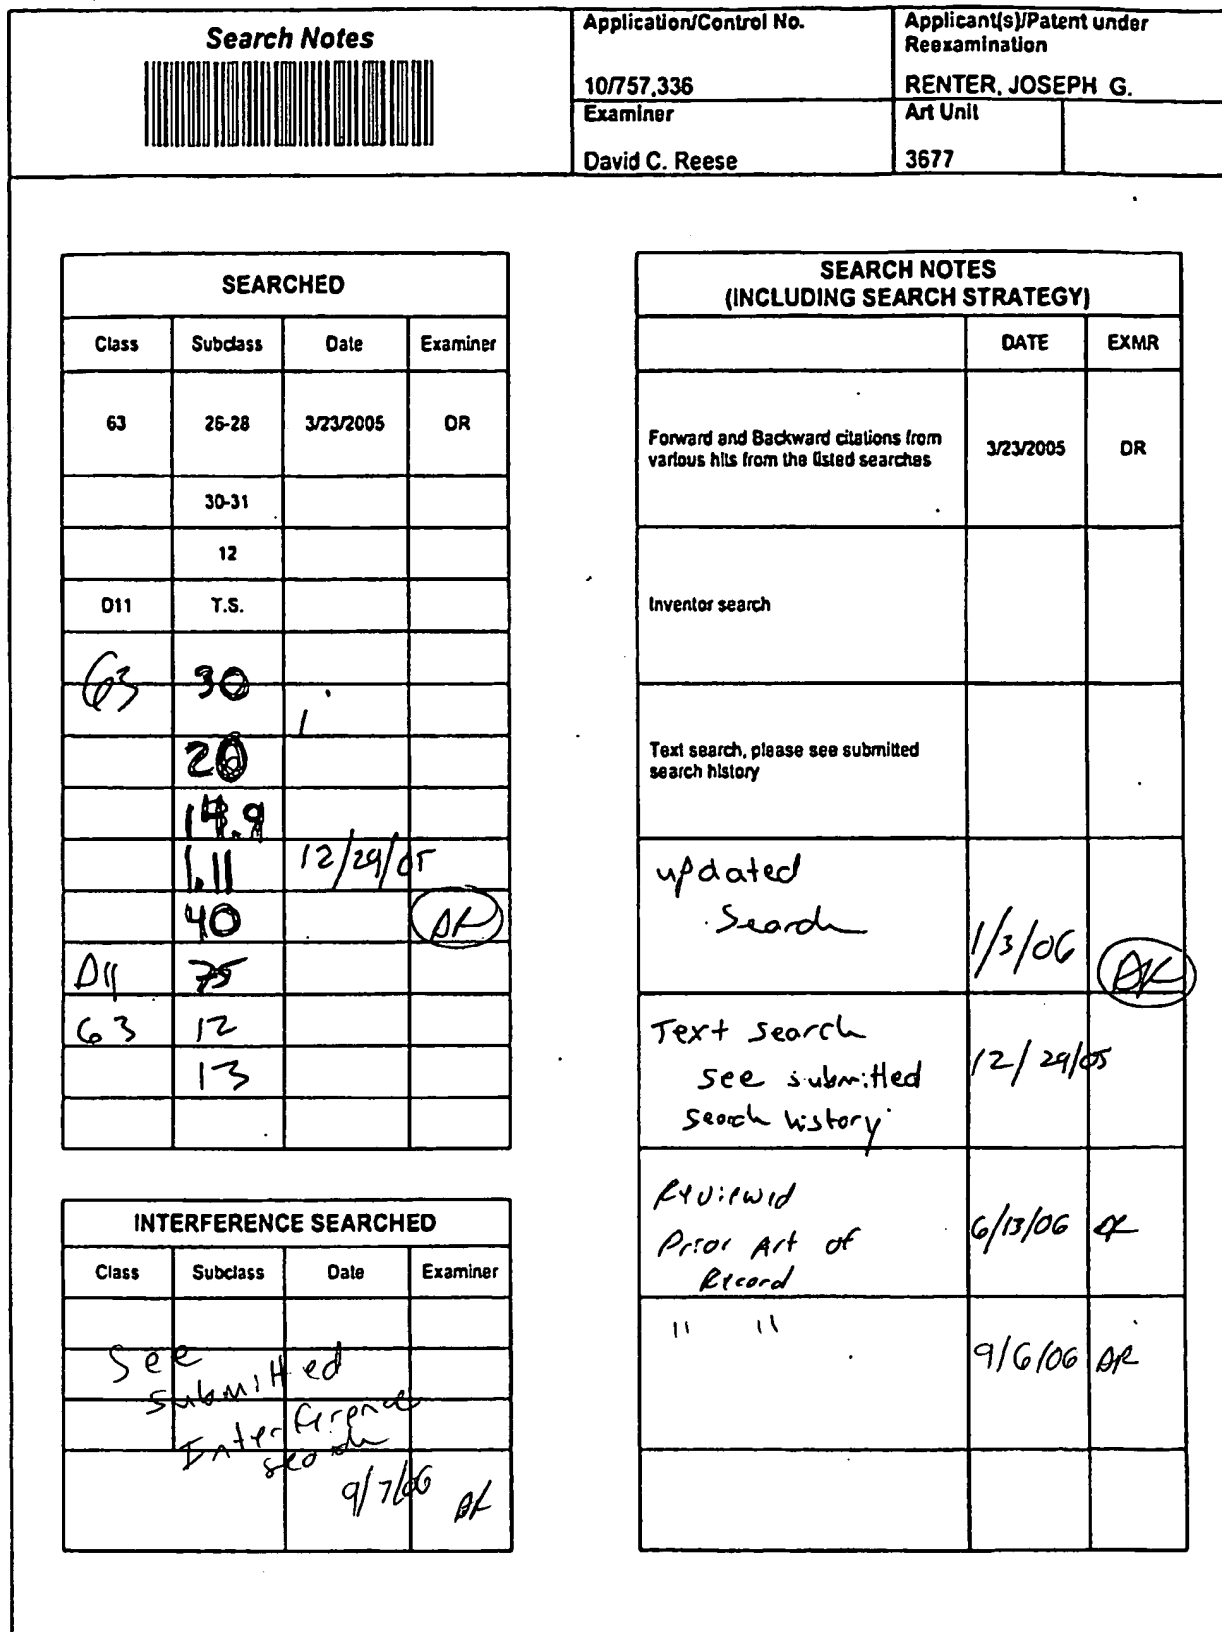 Search Notes
Application/Control No.
10/757,336
Applicant(s)/Patent under
Reexamination
RENTER, JOSEPH G.
Examiner
David C. Reese
Art Unit
3677
SEARCHED
Class Subclass Date Examiner
63 26-28 3/23/2005 DR
30-31
12
D11 T.S.
63 30
20
14.9
1.11 12/29/05
40 DR
D11 75
63 12
13
INTERFERENCE SEARCHED
Class Subclass Date Examiner
See
submitted
Interference
search
9/7/06 DR
SEARCH NOTES
(INCLUDING SEARCH STRATEGY)
DATE EXMR
Forward and Backward citations from
various hits from the listed searches
3/23/2005 DR
Inventor search
Text search, please see submitted
search history
updated
Search
1/3/06 DR
Text search
see submitted
search history
12/29/05
Reviewed
Prior Art of
Record
6/13/06 DR
" "
9/6/06 DR